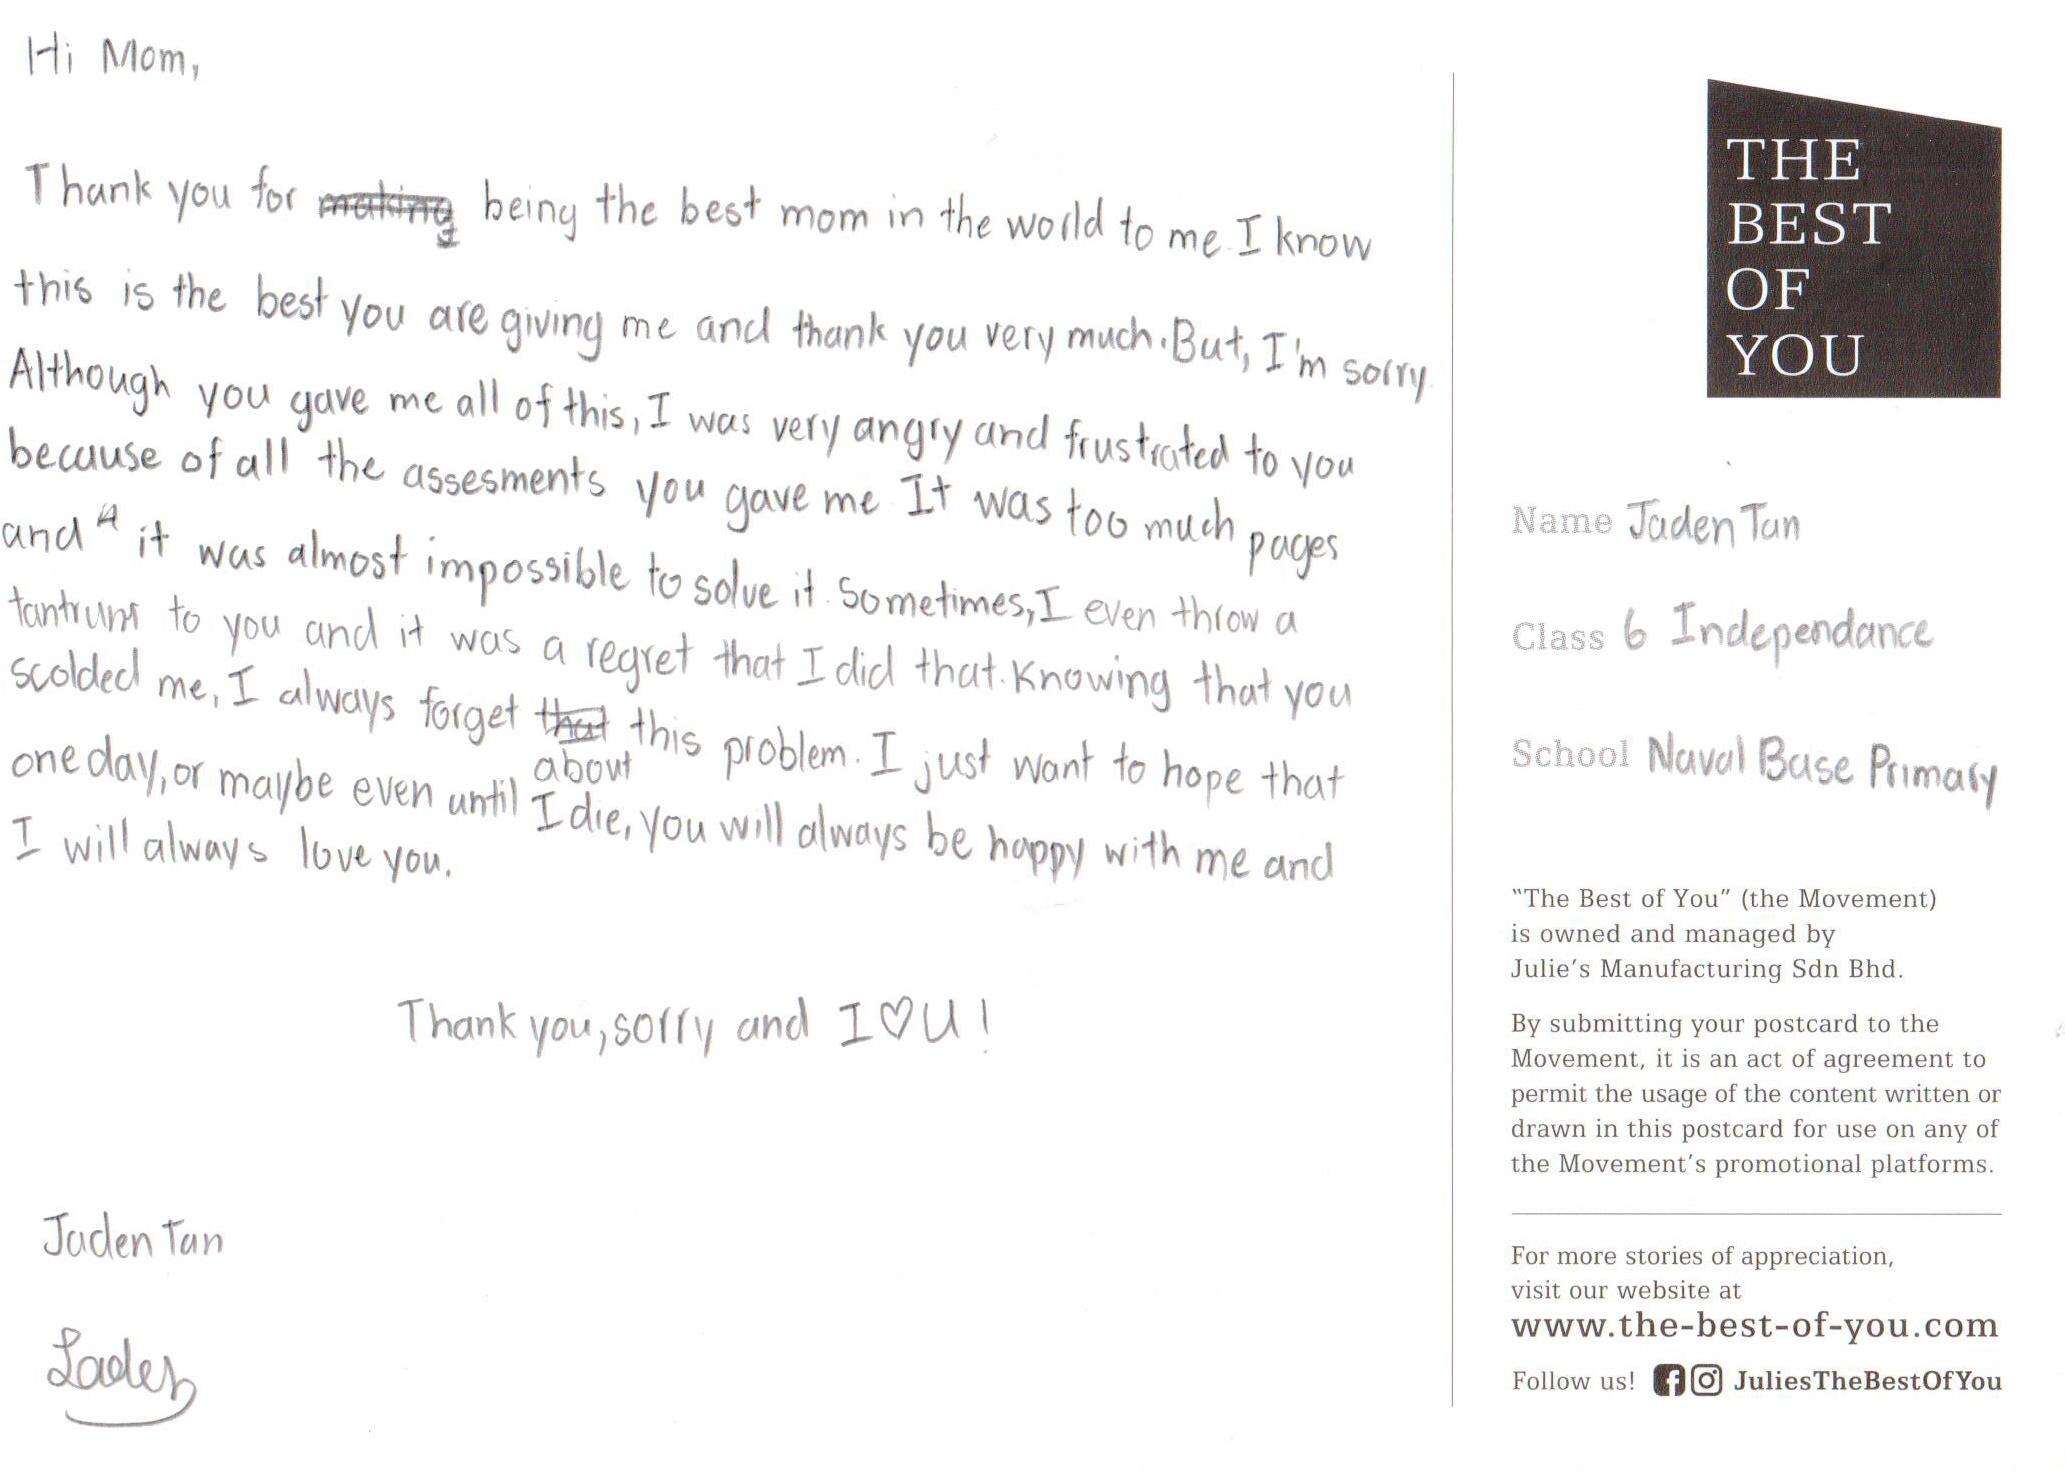 Hi Mom,
Thank you for making being the best mom in the world to me. I know
this is the best you are giving me and thank you very much. But, I'm sorry.
Although you gave me all of this, I was very angry and frustrated to you
because of all the assesments you gave me. It was too much pages
and it was almost impossible to solve it. Sometimes, I even throw a
tantrum to you and it was a regret that I did that. Knowing that you
scolded me, I always forget that this problem. I just want to hope that
about
one day, or maybe even until I die, you will always be happy with me and
I will always love you.
Thank you, sorry and I ♡ U !
Jaden Tan
Jaden
THE
BEST
OF
YOU
Name Jaden Tan
Class 6 Independance
School Naval Base Primary
“The Best of You” (the Movement)
is owned and managed by
Julie’s Manufacturing Sdn Bhd.
By submitting your postcard to the
Movement, it is an act of agreement to
permit the usage of the content written or
drawn in this postcard for use on any of
the Movement’s promotional platforms.
For more stories of appreciation,
visit our website at
www.the-best-of-you.com
Follow us! JuliesTheBestOfYou